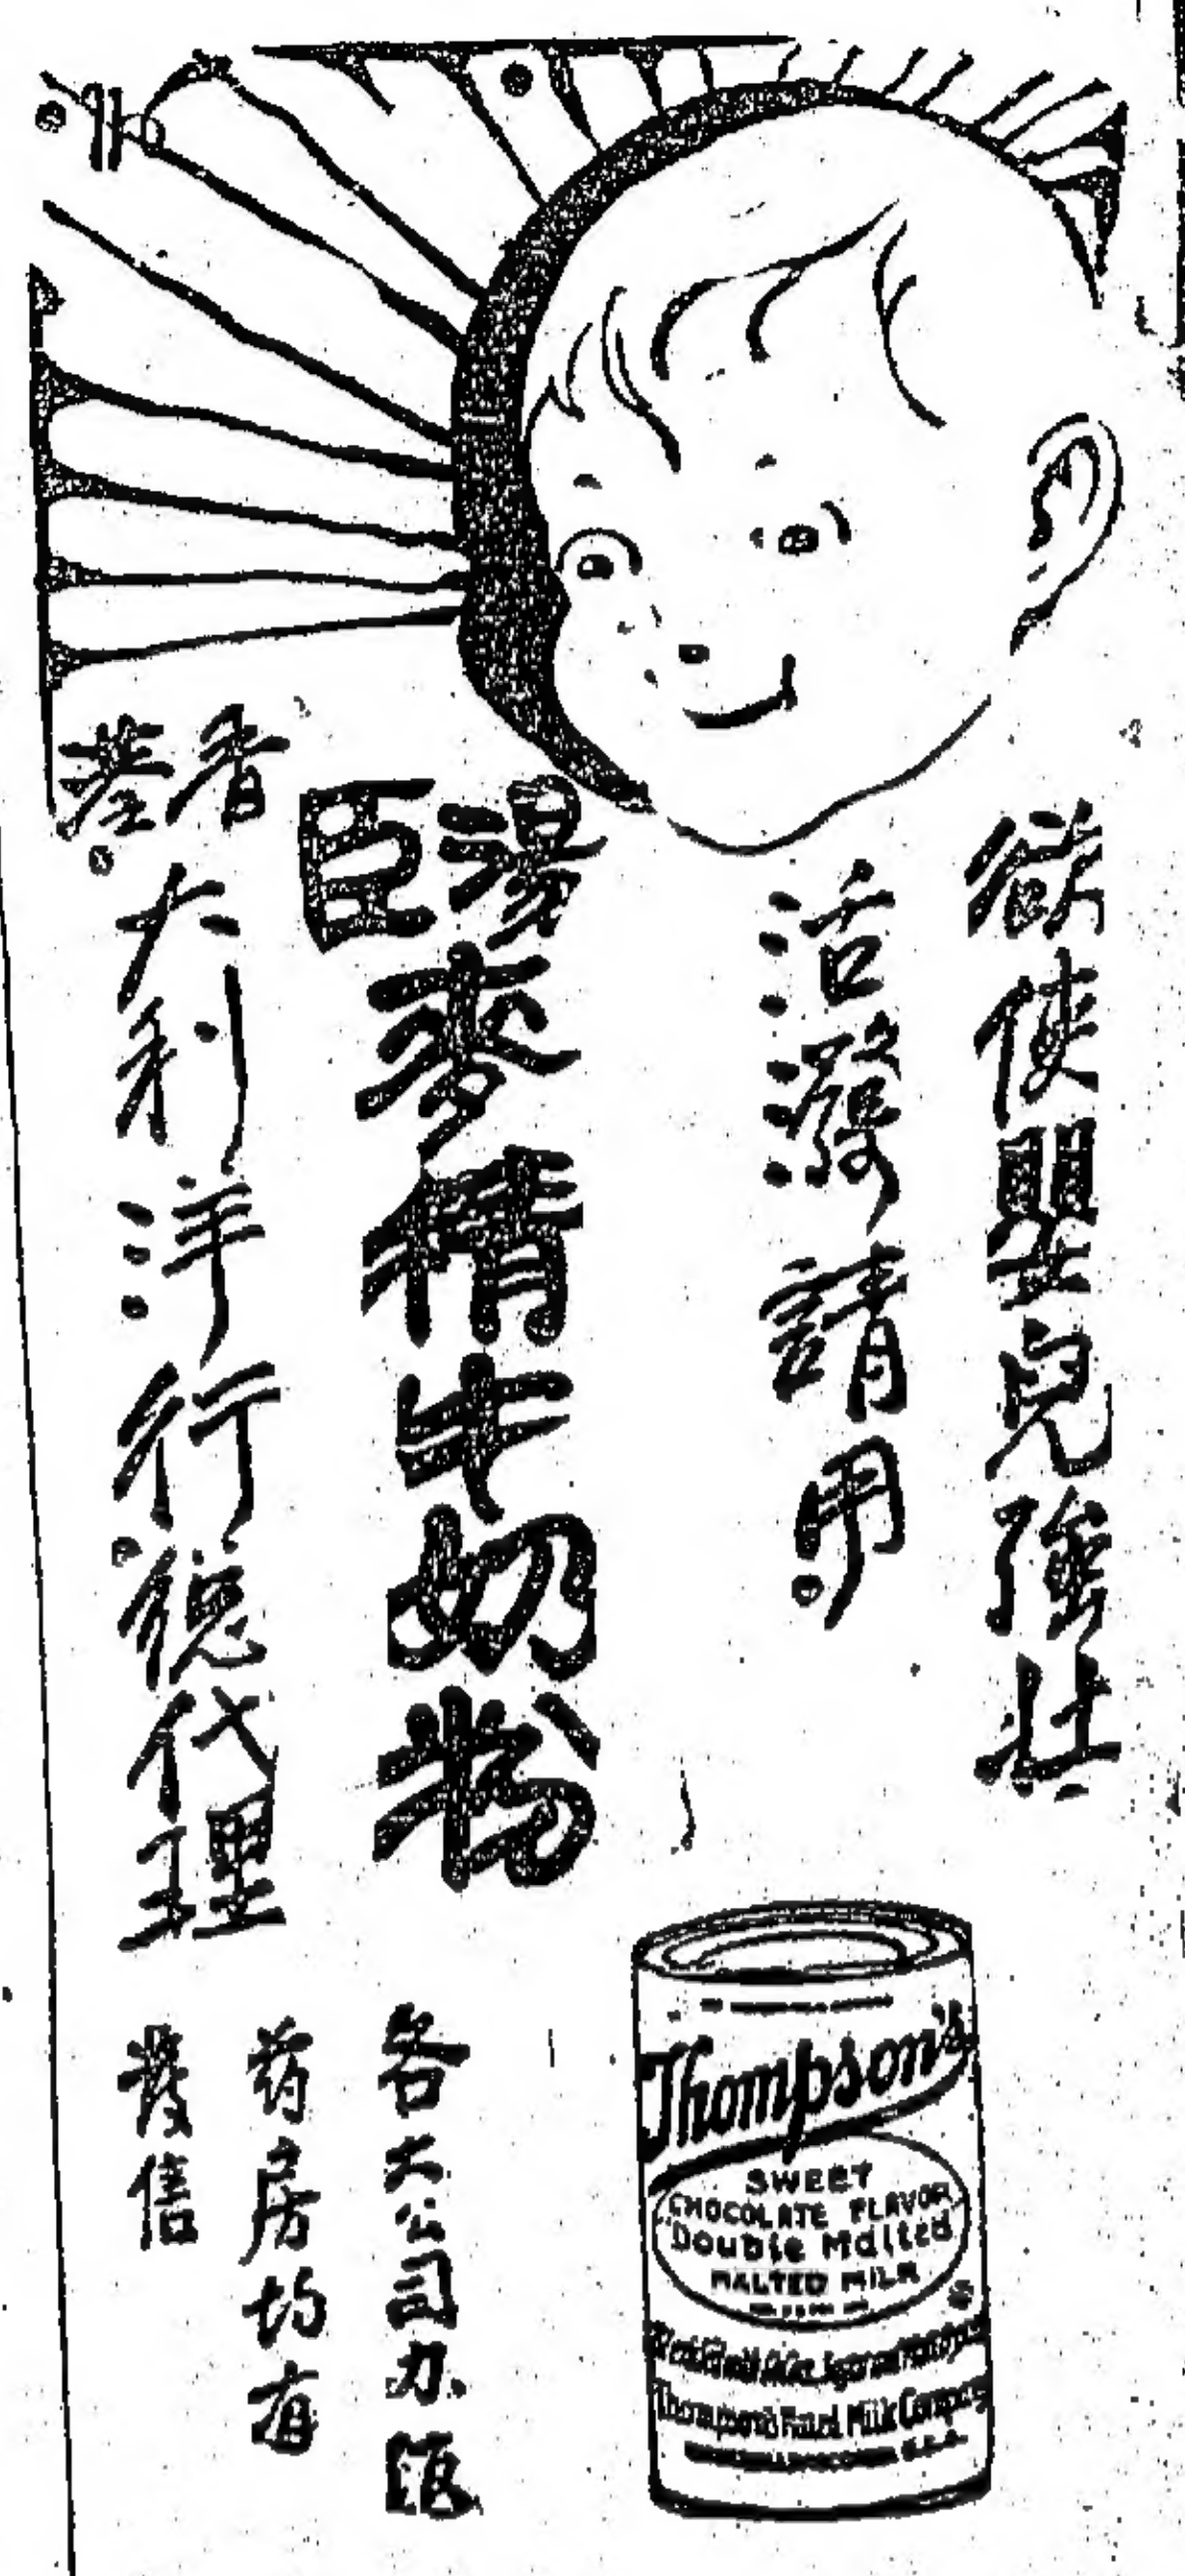 欲使嬰兒強壯
活潑請用
湯臣
麥精牛奶粉
香港
大利洋行總代理
各大公司办館
药房均有
發售
Thompson's
SWEET
CHOCOLATE FLAVOR
"Double Malted"
MALTED MILK
Thompson's Malted Milk Company
U.S.A.